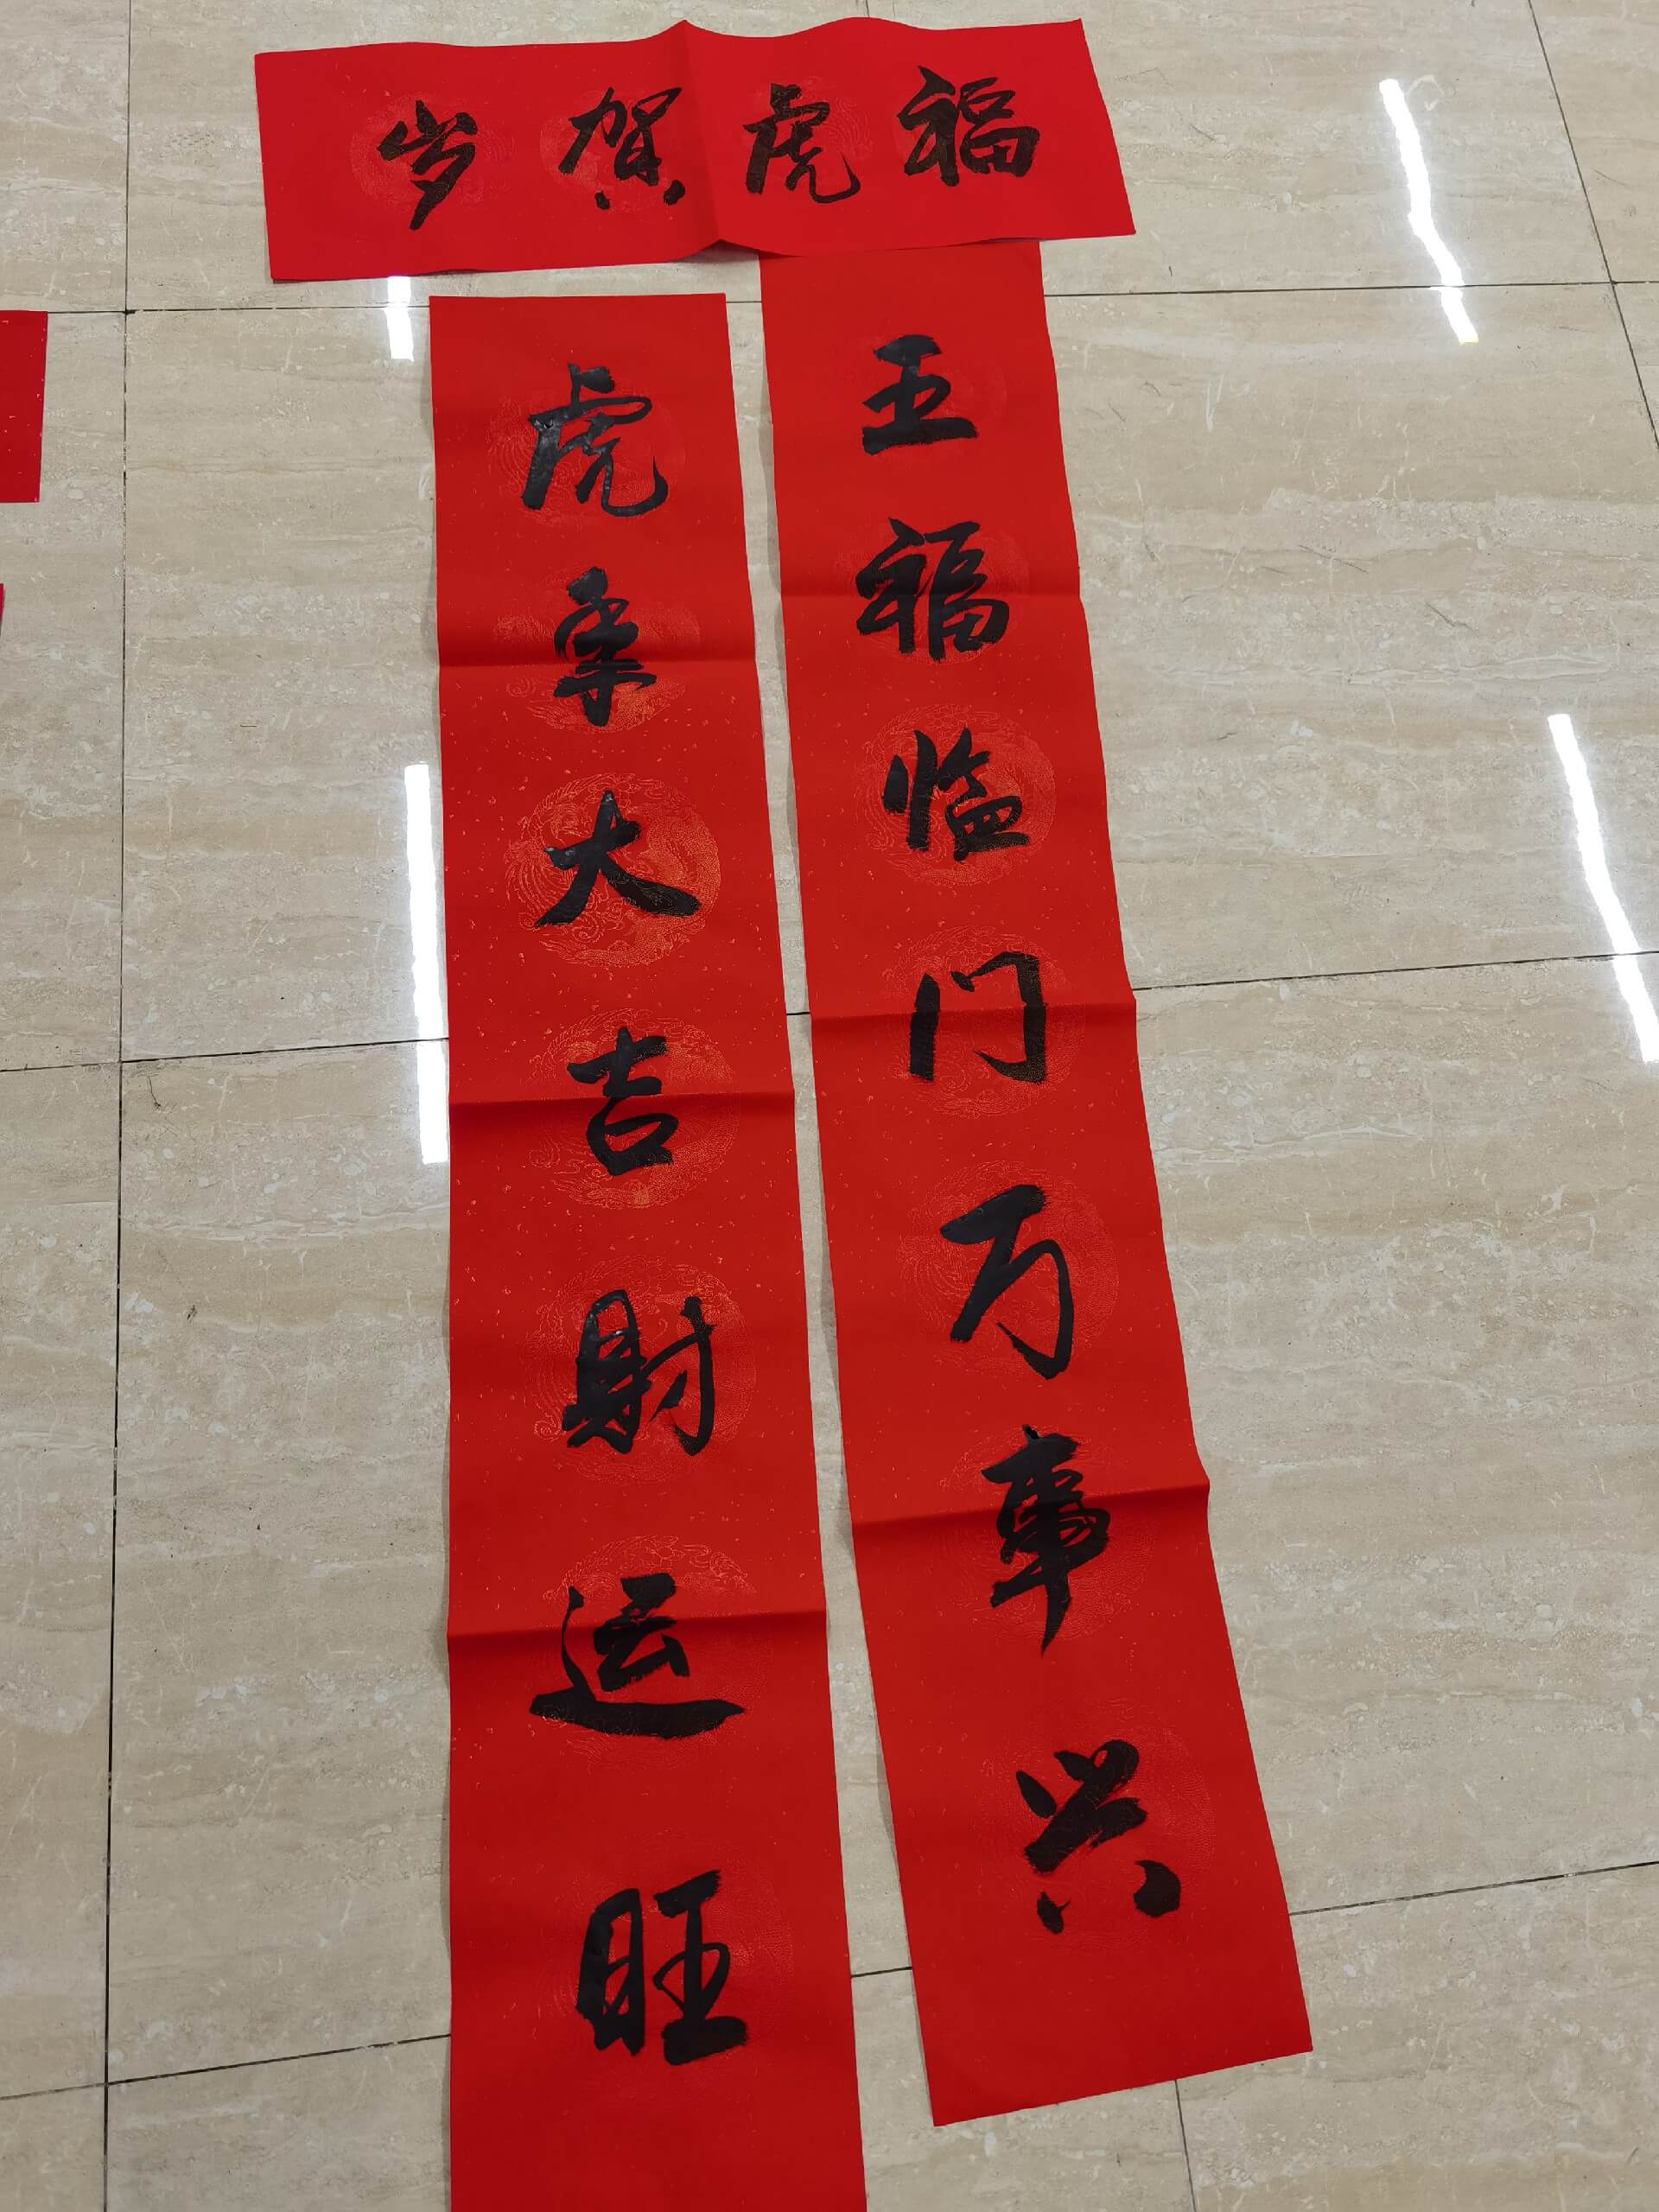 福虎贺岁
五福临门万事兴
虎年大吉財运旺